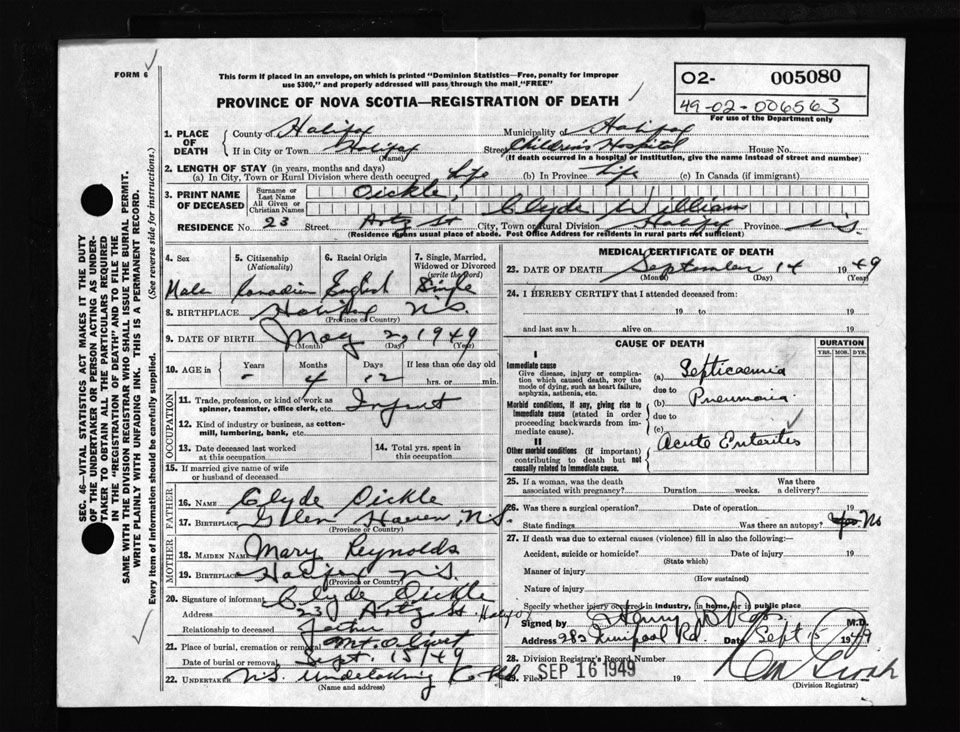 FORM 6
This form if placed in an envelope, on which is printed "Dominion Statistics—Free, penalty for improper
use $300," and properly addressed will pass through the mail "FREE"
PROVINCE OF NOVA SCOTIA—REGISTRATION OF DEATH
O2- 005080
49-02-006563
For use of the Department only
SEC. 46—VITAL STATISTICS ACT MAKES IT THE DUTY
OF THE UNDERTAKER OR PERSON ACTING AS UNDER-
TAKER TO OBTAIN ALL THE PARTICULARS REQUIRED
IN THE "REGISTRATION OF DEATH" AND TO FILE THE
SAME WITH THE DIVISION REGISTRAR WHO SHALL ISSUE THE BURIAL PERMIT.
WRITE PLAINLY WITH UNFADING INK. THIS IS A PERMANENT RECORD.
Every item of information should be carefully supplied. (See reverse side for instructions.)
1. PLACE OF DEATH County of Halifax Municipality of Halifax
If in City or Town Halifax (Name) Street Children's Hospital House No.
(If death occurred in a hospital or institution, give the name instead of street and number)
2. LENGTH OF STAY (in years, months and days)
(a) In City, Town or Rural Division where death occurred Life (b) In Province Life (c) In Canada (if immigrant)
3. PRINT NAME OF DECEASED Surname or Last Name Dickle,
All Given or Christian Names Clyde William
RESIDENCE No. 23 Street Artz St City, Town or Rural Division Halifax Province N.S.
(Residence means usual place of abode. Post Office Address for residents in rural parts not sufficient)
4. Sex 5. Citizenship (Nationality) 6. Racial Origin 7. Single, Married, Widowed or Divorced (write the word)
Male Canadian English Single
8. BIRTHPLACE Halifax N.S.
(Province or Country)
9. DATE OF BIRTH May 2, 1949
(Month) (Day) (Year)
10. AGE in Years Months Days If less than one day old
- 4 12 hrs. or min.
OCCUPATION
11. Trade, profession, or kind of work as spinner, teamster, office clerk, etc. Infant
12. Kind of industry or business, as cotton-mill, lumbering, bank, etc.
13. Date deceased last worked at this occupation 14. Total yrs. spent in this occupation
15. If married give name of wife or husband of deceased
FATHER
16. NAME Clyde Dickle
17. BIRTHPLACE Glen Haven, N.S.
(Province or Country)
MOTHER
18. MAIDEN NAME Mary Reynolds
19. BIRTHPLACE Halifax N.S.
(Province or Country)
20. Signature of informant Clyde Dickle
Address 23 Artz St. Halifax
Relationship to deceased father
21. Place of burial, cremation or removal Mt. Olivet
Date of burial or removal Sept. 15/49
22. UNDERTAKER N.S. Undertaking
(Name and address)
MEDICAL CERTIFICATE OF DEATH
23. DATE OF DEATH September 14 1949
(Month) (Day) (Year)
24. I HEREBY CERTIFY that I attended deceased from:
19 to 19
and last saw h alive on 19
CAUSE OF DEATH DURATION
YRS. MOS. DYS.
I
Immediate cause
Give disease, injury or complication which caused death, NOT the mode of dying, such as heart failure, asphyxia, asthenia, etc.
(a) Septicaemia
due to
Morbid conditions, if any, giving rise to immediate cause (stated in order proceeding backwards from immediate cause).
(b) Pneumonia
due to
(c)
II
Other morbid conditions (if important) contributing to death but not causally related to immediate cause.
Acute Enteritis
25. If a woman, was the death associated with pregnancy? Duration weeks. Was there a delivery?
26. Was there a surgical operation? Date of operation 19
State findings Was there an autopsy? Yes. No
27. If death was due to external causes (violence) fill in also the following:
Accident, suicide or homicide? Date of injury 19
(State which)
Manner of injury
(How sustained)
Nature of injury
Specify whether injury occurred in industry, in home, or in public place
Signed by Henry B Ross M.D.
Address 282 Liverpool Rd. Date Sept 15 1949
28. Division Registrar's Record Number
29. Filed SEP 16 1949 19
(Division Registrar)